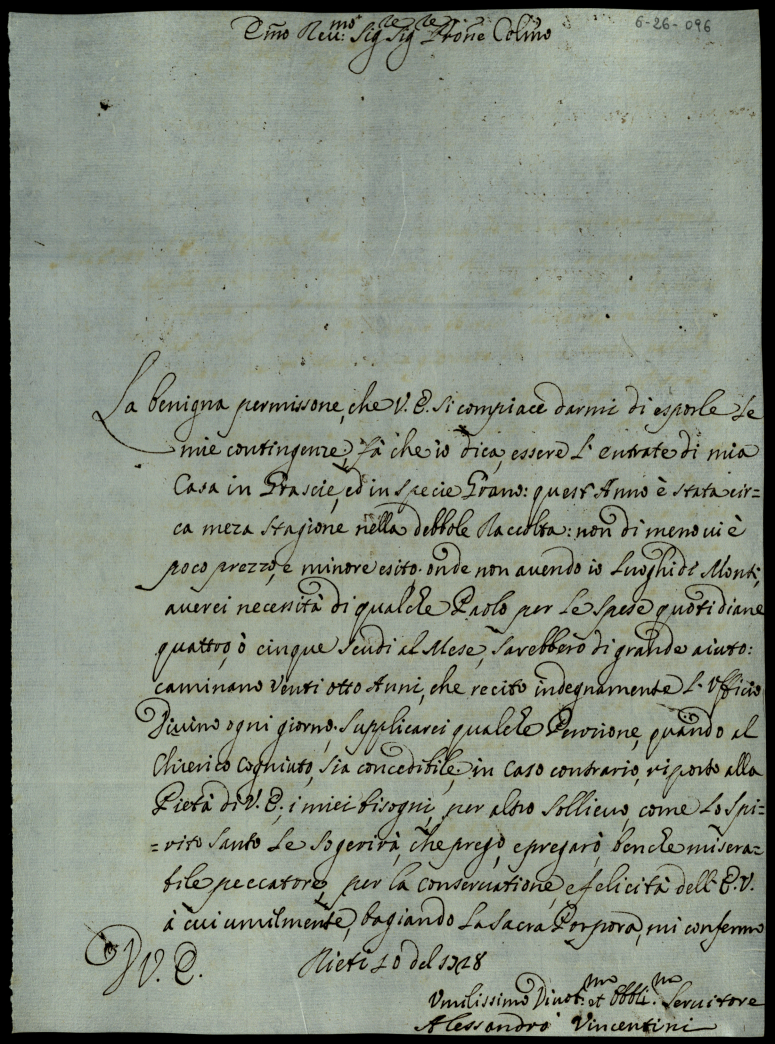 6-26-096
Em̃o Reu:mo Sigre Sigre Prone Colmo
La benigna permissone, che V. E. si compiace darmi di esporle le
mie contingenze, fà che io dica, essere l'entrate di mia
Casa in Grascie, ed in specie Grano: quest'Anno è stata cir=
ca meza stagione nella debbole Raccolta: non di meno ui è
poco prezzo, e minore esito. onde non auendo io Luoghi di Monti,
auerei necessità di qualche Paolo per le spese quotidiane
quattro, ò cinque scudi al Mese, sarebbero di grande aiuto:
caminano Venti otto Anni, che recito indegnamente l'Vfficio
Diuino ogni giorno. Supplicarei qualche Penzione, quando al
Chierico Cogniuto, sia concedibile, in caso contrario, riporto alla
Pietà di V. E. i miei bisogni, per altro sollieuo, come lo Spi=
=rito Santo le sogerirà, che prego, e pregarò, benche misera=
bile peccatore, per la conseruatione, e felicità dell'E. V.
à cui umilmente, bagiando la Sacra Porpora, mi confermo
D V. E.
Rieti 10 del 1728
Vmilissimo Diuot:mo et Obbli:mo Seruitore
Alessandro Vincentini